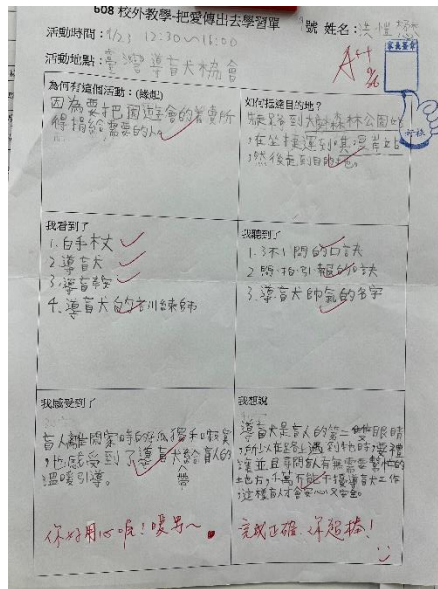 608 校外教學-把愛傳出去學習單
號 姓名:洪愷懋
活動時間: 1/23 12:30~16:00
活動地點: 臺灣導盲犬協會
A++
家長簽章
為何有這個活動:(緣起)
因為要把園遊會的義賣所
得捐給需要的人
如何抵達目的地?
然後走到目的地。
我看到了
1. 白手杖
2. 導盲犬
3. 導盲鞍
4. 導盲犬的訓練師
我聽到了
1. 3不1問的口訣
2. 問、拍、引、報的口訣
3. 導盲犬帥氣的名字
我感受到了
盲人離開家時的孤獨和寂寞
,也感受到了導盲犬給盲人的
溫暖引導。
帶
你好用心呢!嘎男~
我想說
導盲犬是盲人的第二雙眼睛
,所以在路上遇到牠時,要禮
讓並且尋問盲人有無需要幫忙的
地方,千萬不能干擾導盲犬工作
,這樣盲人才會安心又安全。
完成正確.詳超棒!